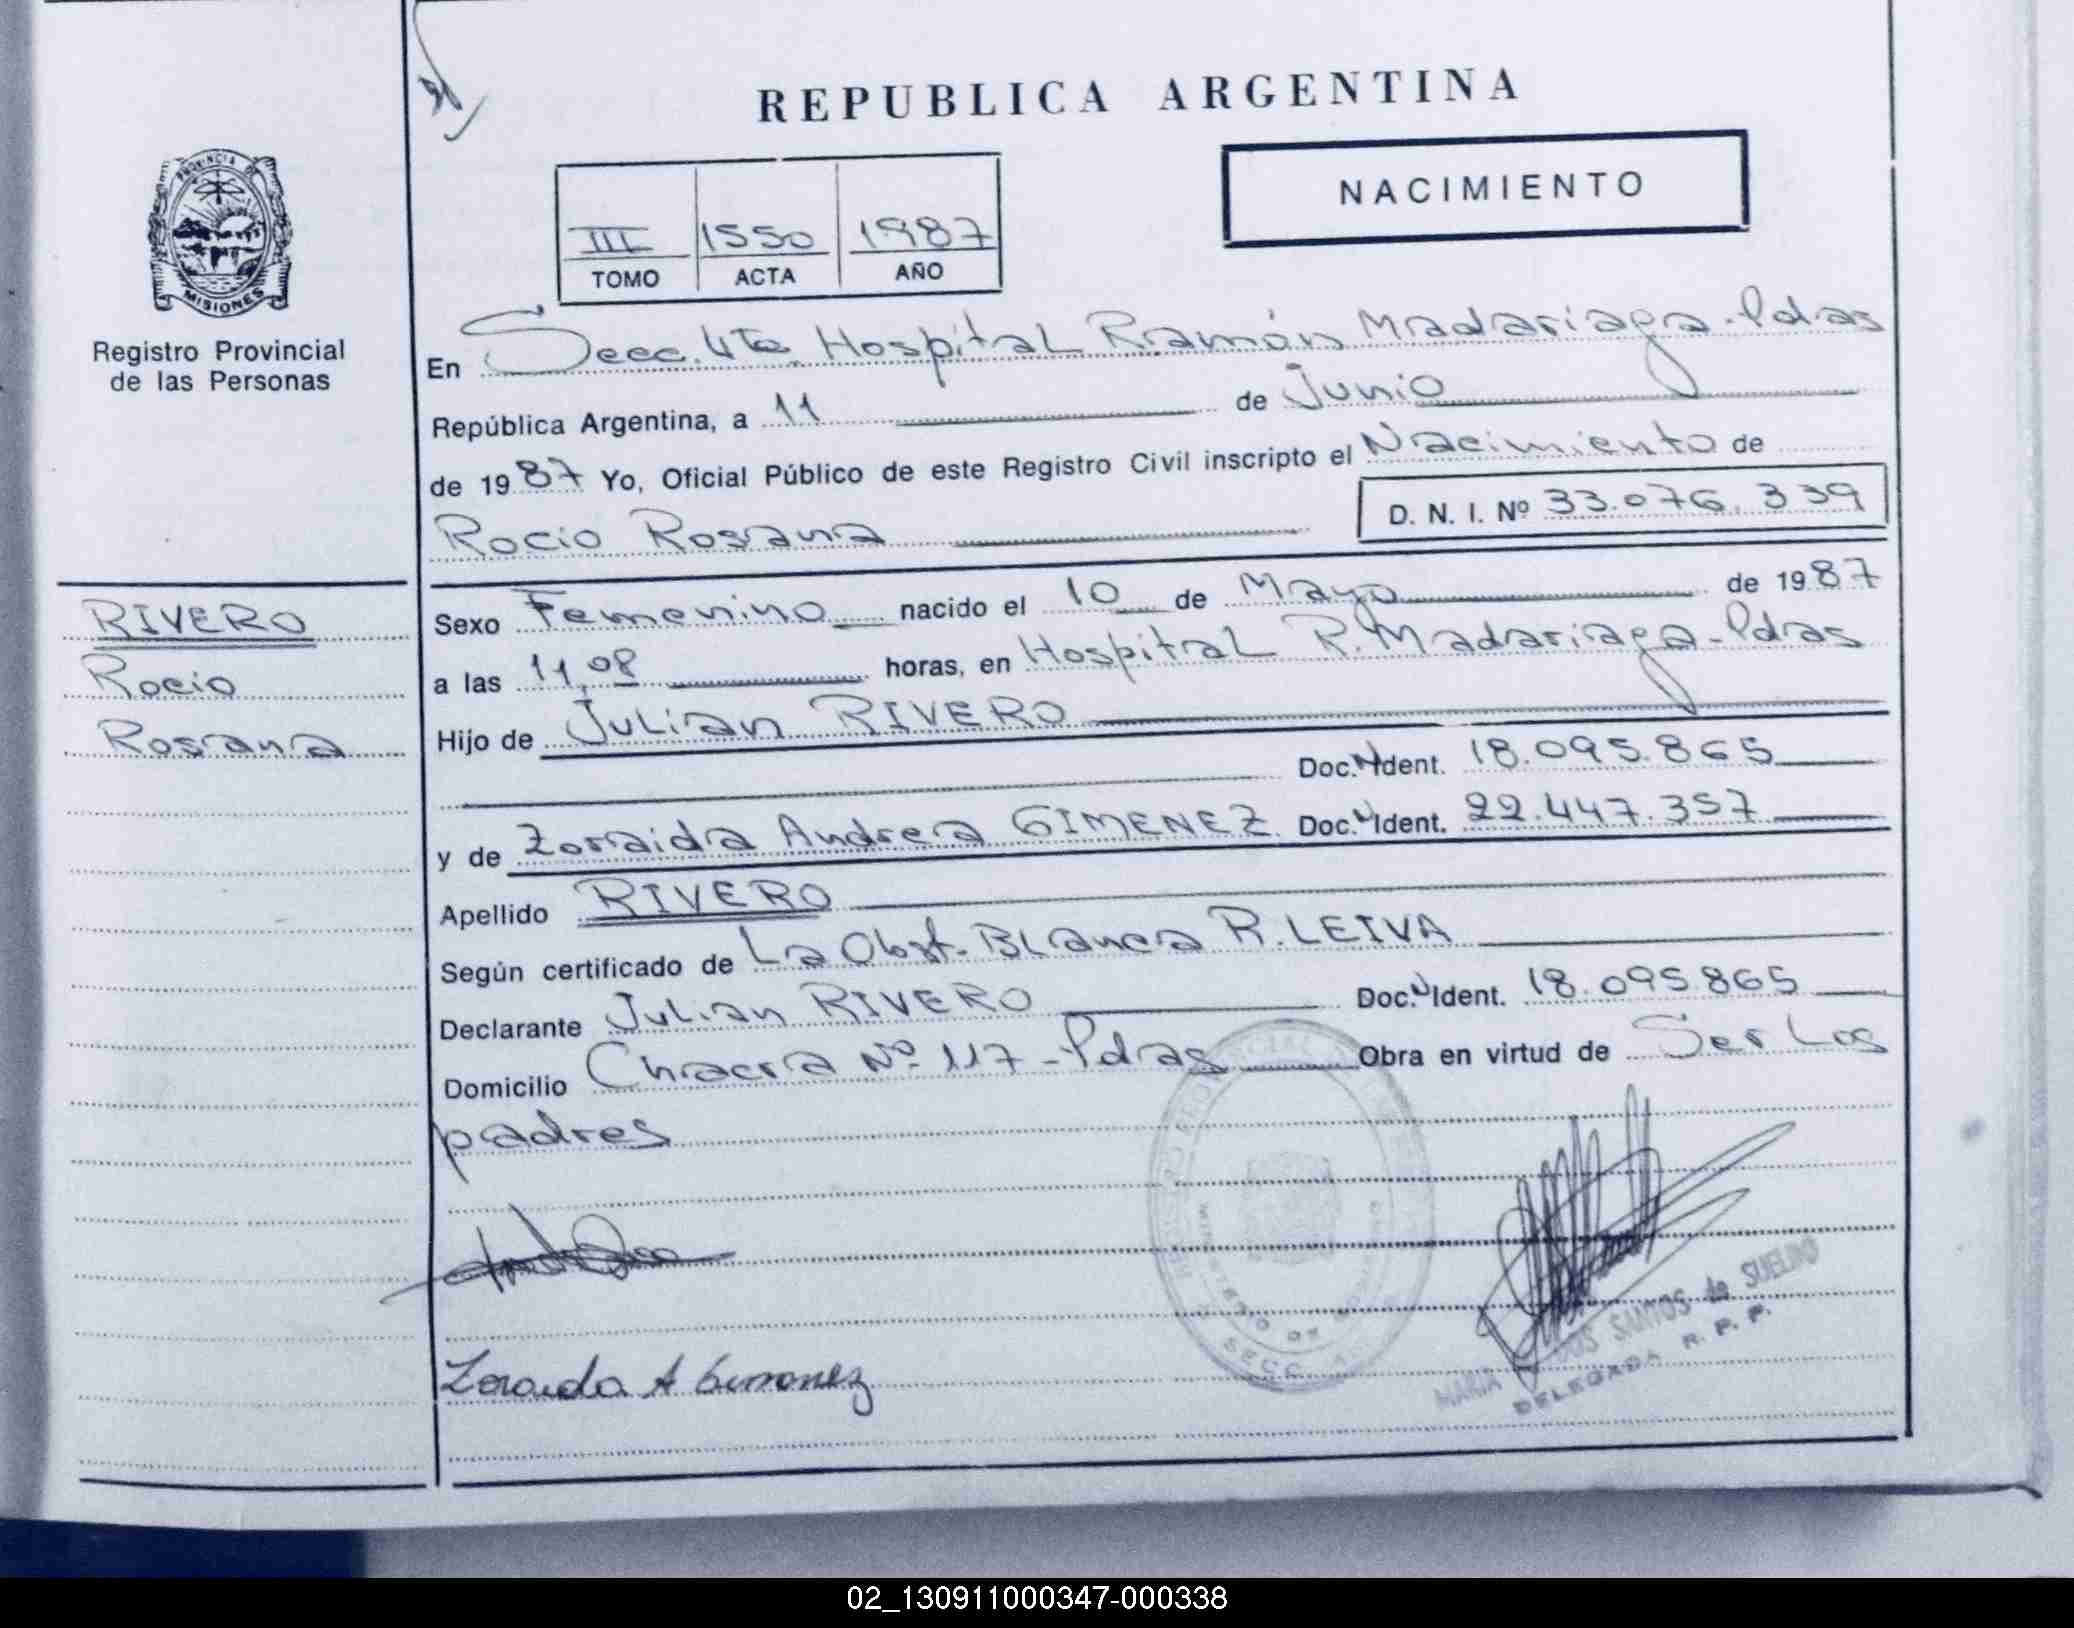 REPUBLICA ARGENTINA
NACIMIENTO
III 1550 1987
TOMO ACTA AÑO
PROVINCIA DE
MISIONES
Registro Provincial
de las Personas
En Secc. 4ta. Hospital Ramón Madariaga - Pdas
República Argentina, a 11 de Junio
de 1987 Yo, Oficial Público de este Registro Civil inscripto el Nacimiento de
Rocio Rosana D. N. I. Nº 33.076.339
RIVERO
Rocio
Rosana
Sexo Femenino nacido el 10 de Mayo de 1987
a las 11,08 horas, en Hospital R. Madariaga - Pdas
Hijo de Julian RIVERO
Doc. N Ident. 18.095.865
y de Zoraida Andrea GIMENEZ Doc. N Ident. 22.447.357
Apellido RIVERO
Según certificado de La Obst. Blanca R. LEIVA
Declarante Julian RIVERO Doc. N Ident. 18.095.865
Domicilio Chacra Nº 117 - Pdas Obra en virtud de Ser Los
padres
Zoraida A Gimenez
MARIA DOS SANTOS de SUELDO
DELEGADA R. P. P.
SECC.
02_130911000347-000338